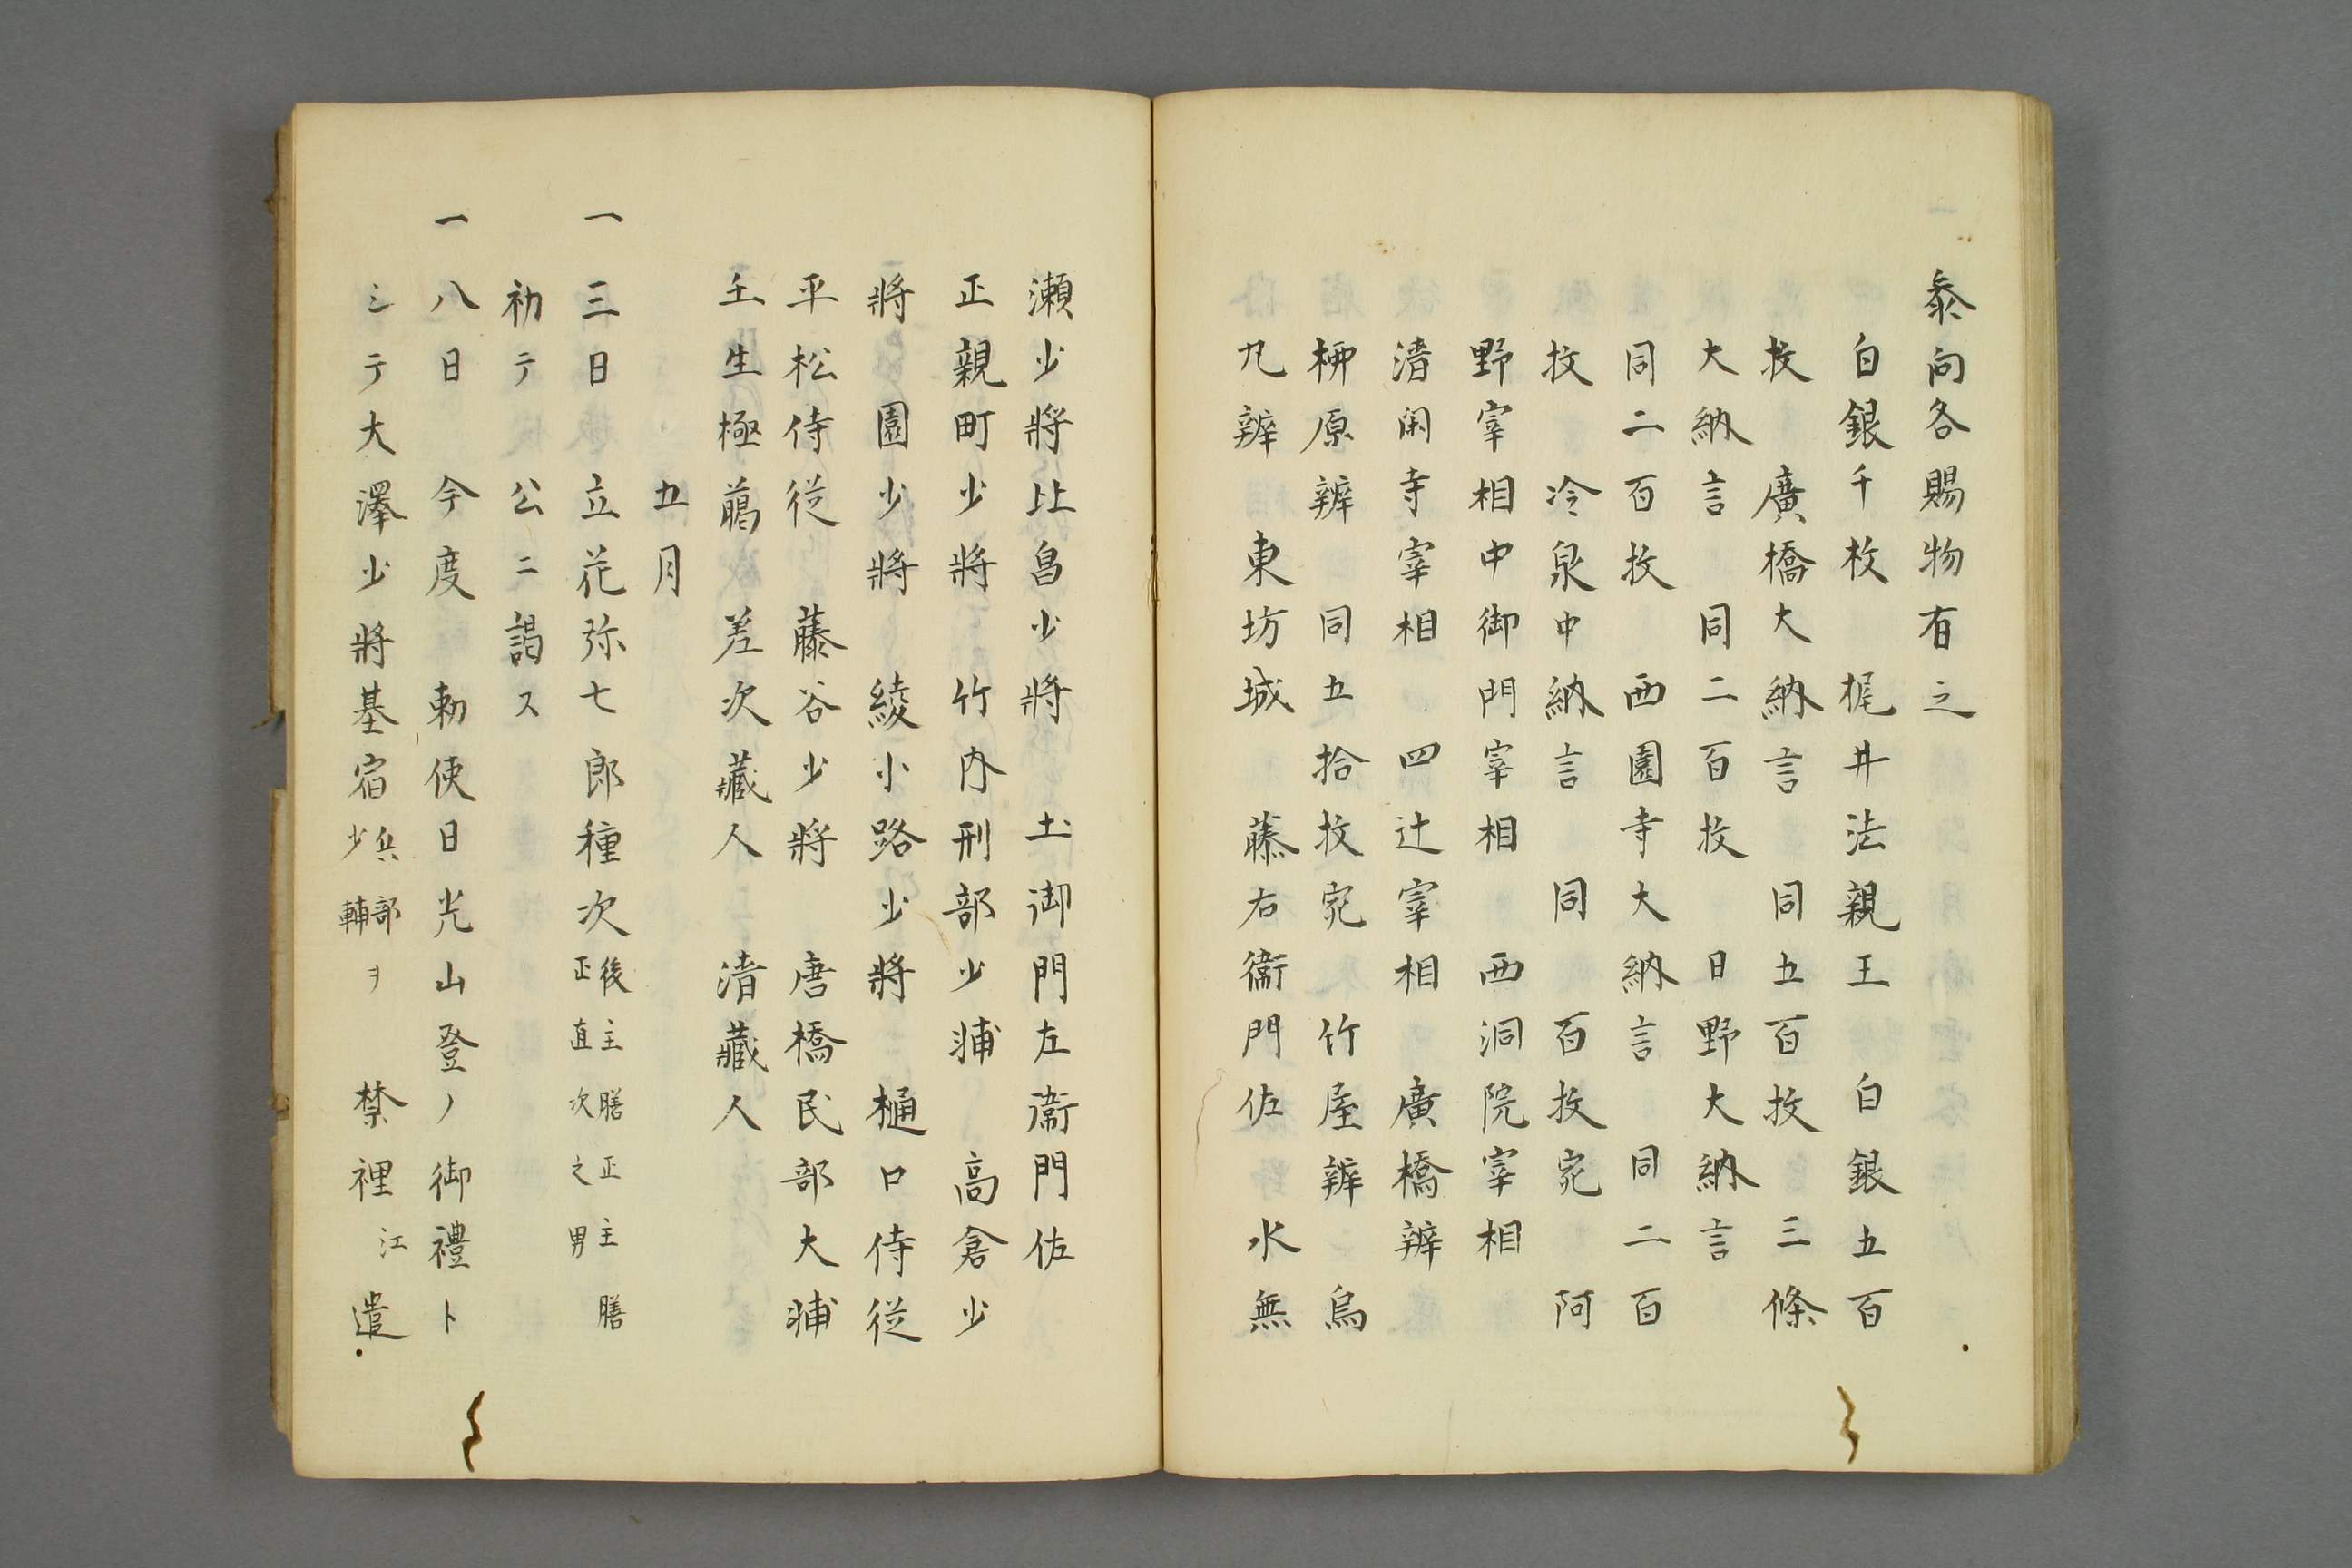 参向各賜物有之
白銀千枚　梶井法親王　白銀五百
枚　廣橋大納言　同五百枚　三條
大納言　同二百枚　日野大納言
同二百枚　西園寺大納言　同二百
枚　冷泉中納言　同　百枚宛　阿
野宰相中御門宰相　西洞院宰相
清閑寺宰相　四辻宰相　廣橋辨
栁原辨　同五拾枚宛竹屋辨　烏
丸辨　東坊城　藤右衞門佐　水無
瀬少將比昌少將　土御門左衞門佐
正親町少將　竹内刑部少輔　高倉少
將　園少將　綾小路少將　樋口侍従
平松侍従　藤谷少將　唐橋民部大輔
壬生極﨟　差次藏人　清藏人
五月
一　三日　立花弥七郎種次後主膳正主膳正直次之男
初テ　公ニ謁ス
一　八日　今度　勅使日光山登ノ御禮ト
シテ大澤少將基宿兵部少輔ヲ　禁裡江遣